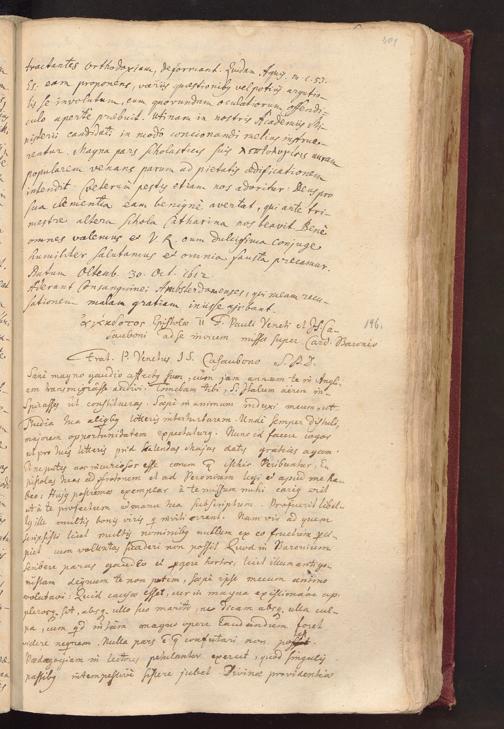 309
tractantes orthodoxiam, deformant. Quidam Aqug. m. c. 53.
Es. eam proponens, variis quæstionibg vel potius argutiis
se involutum, eum quorundam oculatiorum offendi-
culo aperte præbuit. Utinam in nostris Academiis Mi-
nisterii candidati in modo concionandi melius instrue-
rentur. Magna pars scholasticis suis auram
popularem venans parum ad pietatis ædificationem
intendit. Veterum pestis etiam nos adoritur. Deus pro
sua clementia eam benignè avertat, qui ante tri-
mestre altera schola Catharina nos beavit. Benè
omnes valemus et V R cum dulcissima conjuge
humiliter salutamus et omnia fausta precamur.
Datum Oltenb. 30. Oct. 1612
Aderant Consanguinei Ambsterdamenses, qui meam recu-
sationem malam gratiam inisse ajebant.
Epistolæ II F. Pauli Veneti et Is. Ca-
sauboni ad se invicem missæ super Card. Baronio
196.
Frat. P. Venetus IS. Casaubono S. P. D.
Sane magno gaudio affectg sum, cum jam annum te in Angli-
am transmigrasse audivi. Timebam tibi, si Italum aërem in-
spirasses ut consultaras. Sæpe in animum induxi meum, ut
studia tua aliqbg litteris interturbarem. Unde semper distuli,
majorem opportunitatem expectaturg. Nunc id facere cogor
et pro tuis litteris prid Kalendas Majas datis gratias agam.
incuriosus esse eorum q istic scribuntur. E-
pistolas tuas ad frontonem et ad Peronium legi et apud me ha-
beo: Hujg postremæ exemplar à te missum mihi carig erit
et à te profectum et manu tua subscriptum. Profuerit libel-
lg ille multis bonis viris q inviti errent. Nam vir ad quem
scripsisti licet multis nominibg nullum ex eo fructum per-
piet cum voluntas suaderi non possit. Quod in Baronium
scribere paras gaudeo et rogare hortor, licet illum antago-
nistam dignum te non putem, sæpe ipse mecum animo
volutavi: Quid causæ esset, cur in magna existimatione ap.
plerosq sit, absq. ullo suo merito, ne dicam absq. ulla cul-
pa, cum qd in istum magno opere laudandum foret
videre nequeam. Nulla pars e q confutari non possit.
Pædagogiam in lectores petulanter exercet, quod singulis
passibg intempestivè sistere jubet Divinæ providentiæ